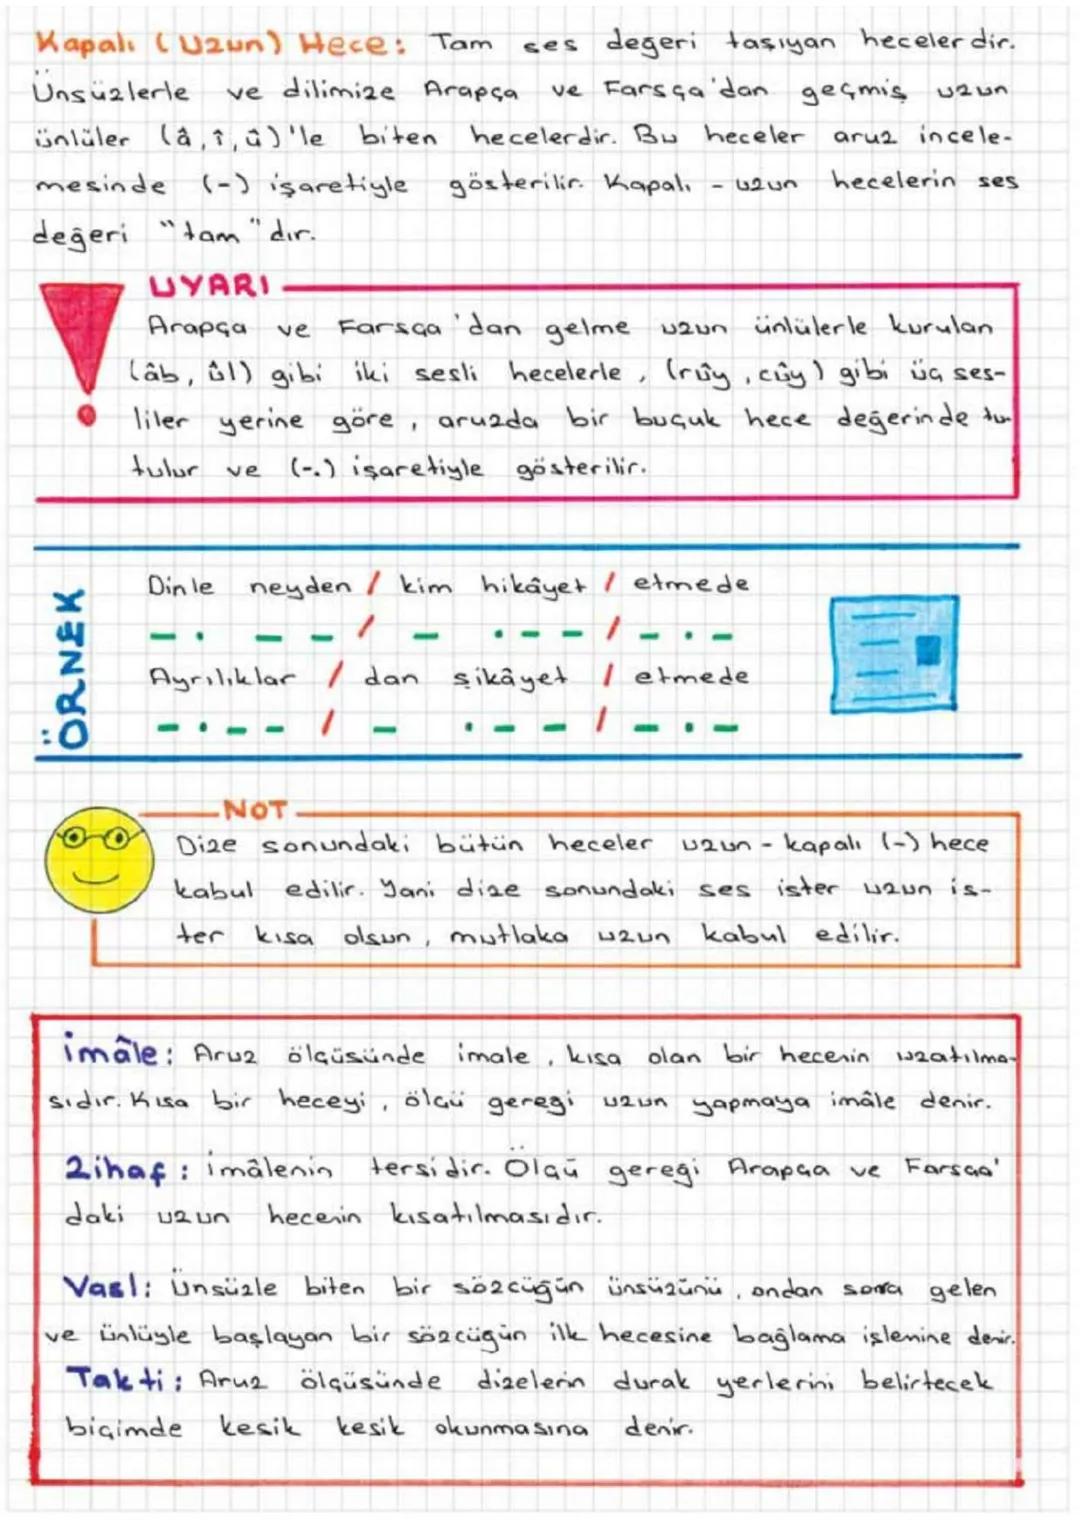 Kapalı (Uzun) Hece: Tam ses değeri taşıyan hecelerdir.
Ünsüzlerle ve dilimize Arapça ve Farsça'dan geçmiş uzun
ünlüler (â, î, û)'le biten hecelerdir. Bu heceler aruz incele-
mesinde (-) işaretiyle gösterilir. Kapalı - uzun hecelerin ses
değeri "tam" dır.
UYARI
Arapça ve Farsça'dan gelme uzun ünlülerle kurulan
(âb, ûl) gibi iki sesli hecelerle, (rûy, cûy) gibi üç ses-
liler yerine göre, aruzda bir buçuk hece değerinde tu
tulur ve (-.) işaretiyle gösterilir.
ÖRNEK
Dinle neyden / kim hikâyet / etmede
- . - - / - - . - - - / - . - -
Ayrılıklar / dan şikâyet / etmede
- . - - / - . - - / - . -
NOT
Dize sonundaki bütün heceler uzun - kapalı (-) hece
kabul edilir. Yani dize sonundaki ses ister uzun is-
ter kısa olsun, mutlaka uzun kabul edilir.
imâle: Aruz ölçüsünde imale, kısa olan bir hecenin uzatılma-
sıdır. Kısa bir heceyi, ölçü gereği uzun yapmaya imâle denir.
Zihaf: İmâlenin tersidir. Ölçü gereği Arapça ve Farsça'
daki uzun hecenin kısatılmasıdır.
Vasl: Ünsüzle biten bir sözcüğün ünsüzünü, ondan sonra gelen
ve ünlüyle başlayan bir sözcüğün ilk hecesine bağlama işlemine denir.
Takti: Aruz ölçüsünde dizelerin durak yerlerini belirtecek
biçimde kesik kesik okunmasına denir.